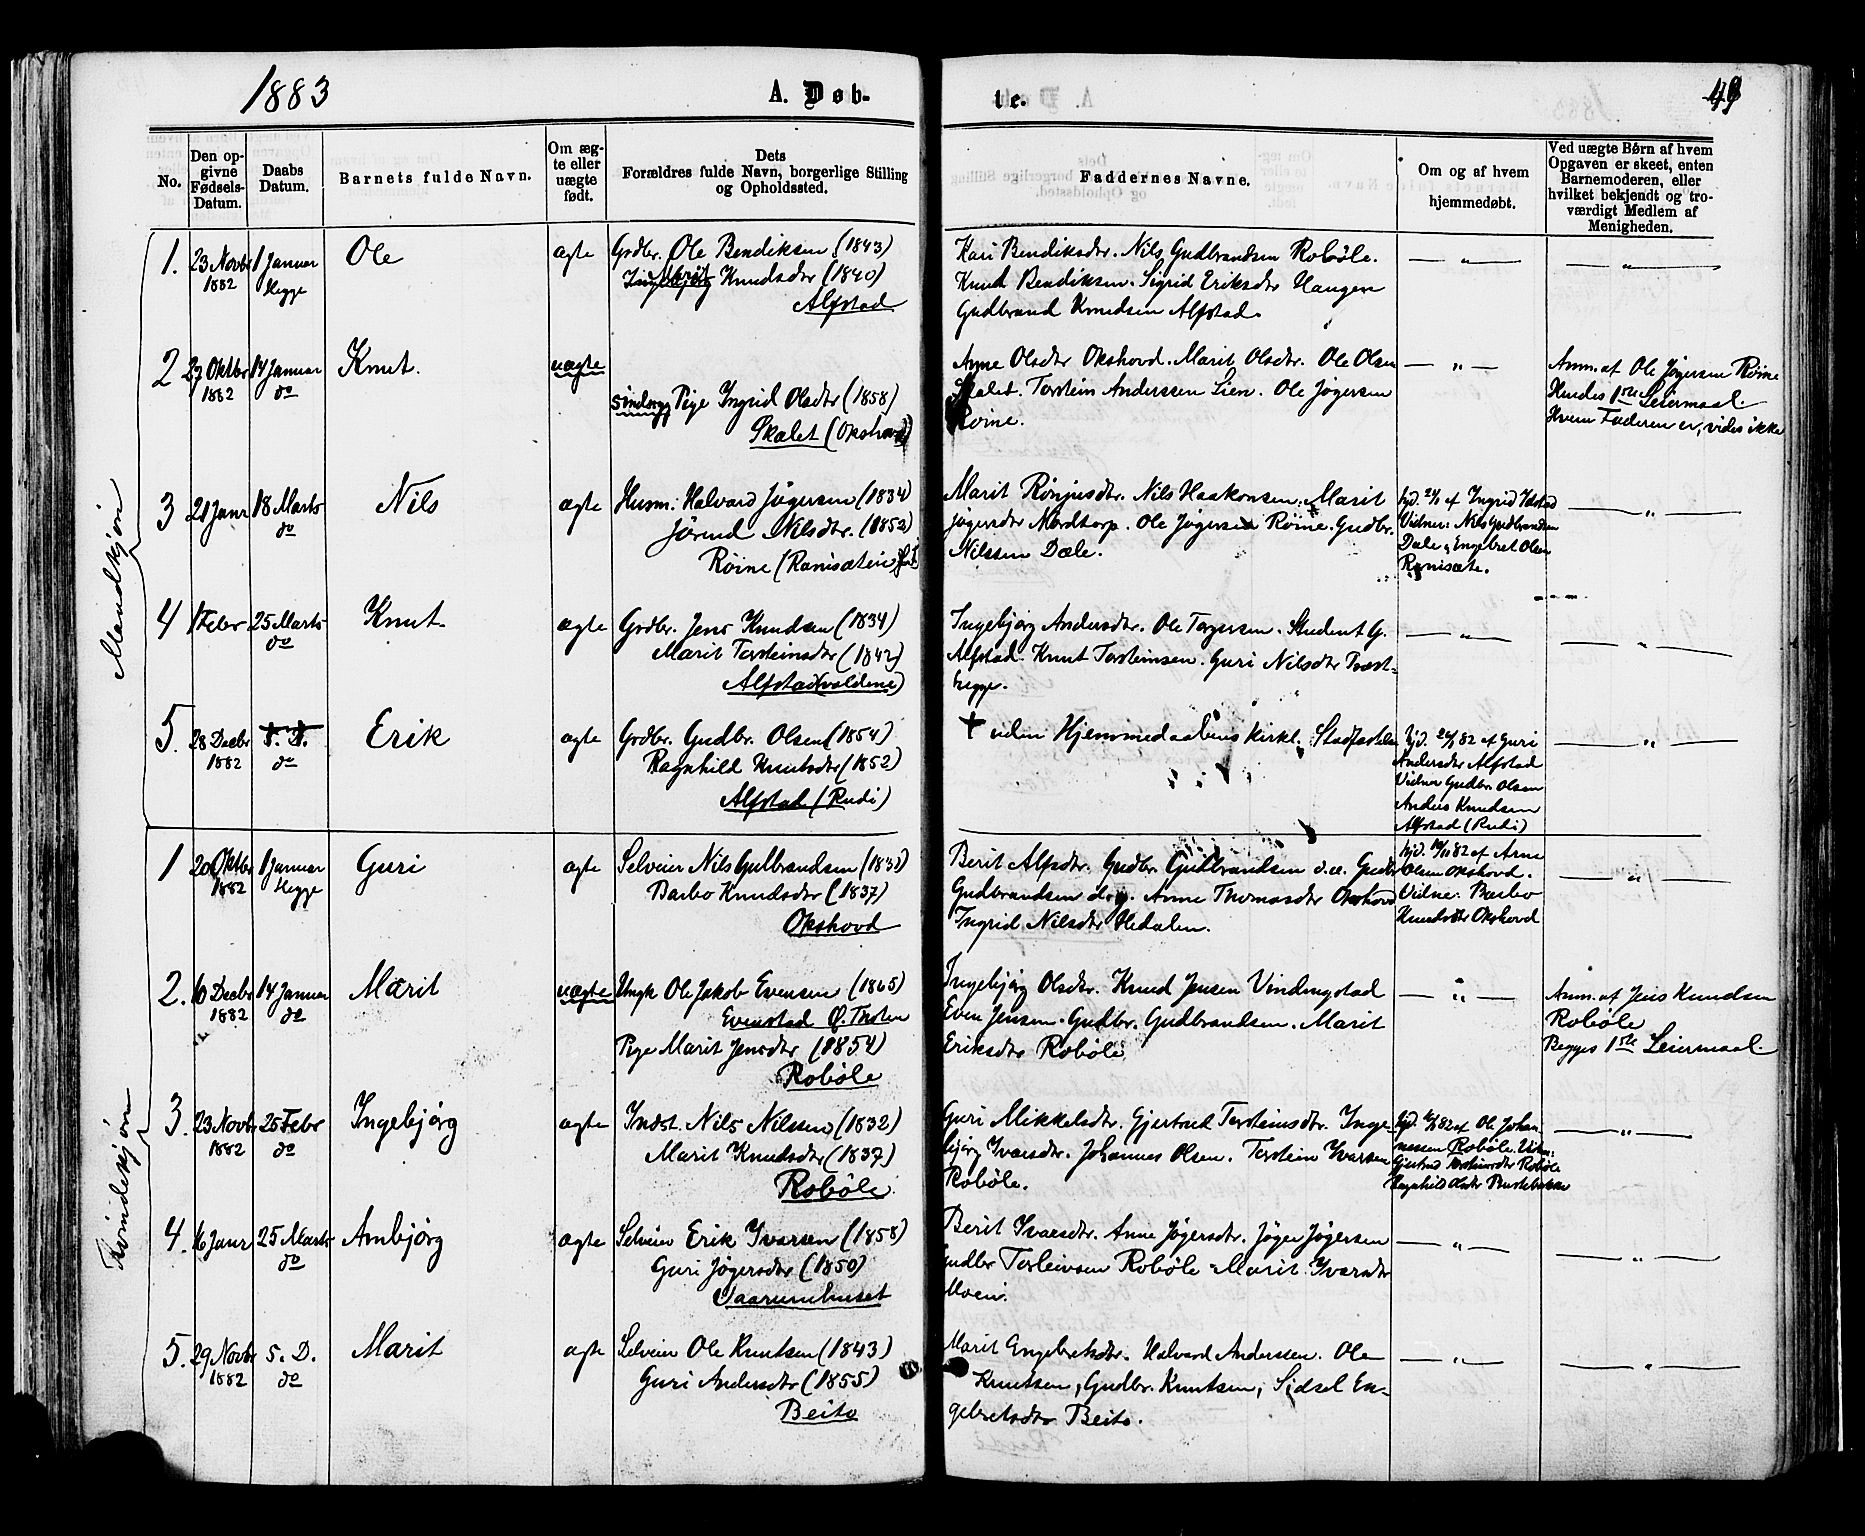 1883
A. Døb-
te.
49
No.
Den op-
givne
Fødsels-
Datum.
Daabs
Datum.
Barnets fulde Navn.
Om æg-
te eller
uægte
født.
Dets
Forældres fulde Navn, borgerlige Stilling
og Opholdssted.
Faddernes Navne.
Om og af hvem
hjemmedøbt.
Ved uægte Børn af hvem
Opgaven er skeet, enten
Barnemoderen, eller
hvilket bekjendt og tro-
værdigt Medlem af
Menigheden.
Mandkjøn
1.
23 Novbr
1882
1 Januar
Hegge
Ole
ægte
Grdbr. Ole Bendiksen (1843)
Knudsdtr (1840)
Alfstad
Kari Bendiksdtr. Nils Gudbrandsen Robøle.
Knud Bendiksen. Sigrid Eriksdtr Haugen
Gudbrand Knudsen Alfstad.
— " —
— " —
2
27 Oktbr
1882
14 Januar
do
Knut.
uægte
Pige Ingrid Olsdtr (1858)
Skalet (Okshovd)
Anne Olsdtr Okshovd. Marit Olsdtr. Ole Olsen
Skalet. Torstein Anderssen Lien. Ole Jøgersen
Røine.
— " —
Anm. af Ole Jøgersen Røine
Hendes 1ste Leiermaal.
Hvem Faderen er, vides ikke
3
21 Janr
18 Marts
do
Nils
ægte
Husm. Halvard Jøgersen (1834)
Jørund Nilsdtr. (1852)
Røine (Ranisæteie)
Marit Rønjusdtr. Nils Haakonsen. Marit
Jøgersdtr Mørstorp. Ole Jøgersen Røine. Gudbr.
Nilssen Dale.
hjd. af Ingrid Ildstad
Vidner: Nils Gudbrandsen
Dale, Engebret Olsen
Ranisæte.
— " —
4
1 Febr
25 Marts
do
Knut
ægte
Grdbr. Jens Knudsen (1834)
Marit Torsteinsdtr (1842)
Alfstad (valdene)
Ingebjørg Andersdtr. Ole Torgersen. Student G.
Alfstad. Knut Torsteinsen. Guri Nilsdtr Tvæst-
hegge.
— " —
— " —
5.
28 Decbr
1882
S. D.
do
Erik
ægte
Grdbr. Gudbr. Olsen (1854)
Ragnhild Knutsdtr (1852)
Alfstad (Rudi)
† uden Hjemmedaabens kirkl. Stadfæstelse
hjd. 82 af Guri
Andersdtr Alfstad
Vidner Gudbr. Olsen
Anders Knudsen
Alfstad (Rudi)
— " —
Kvindekjøn
1
20 Oktbr
1882
1 Januar
Hegge
Guri
ægte
Selveier Nils Gulbrandsen (1832)
Barbo Knudsdtr (1837)
Okshovd
Berit Alfsdtr. Gudbr. Gudbrandsen d.æ. Gudbr
Gudbrandsen d.y. Anne Thomasdtr Okshovd
Ingrid Nilsdtr Hedalen.
hjd. 82 af Arne
Olsen Okshovd.
Vidne: Barbo
Knudsdtr Okshovd
— " —
2.
10 Decbr
1882
14 Januar
do
Marit
uægte
Ungk Ole Jakob Evensen (1865)
Evenstad Ø. Thoten
Pige Marit Jensdtr (1854)
Robøle
Ingebjørg Olsdtr. Knud Jensen Vindingstad
Even Jensen. Gudbr. Gudbrandsen. Marit
Eriksdtr Robøle
— " —
Anm. af Jens Knudsen
Robøle
Begges 1ste Leiermaal.
3.
23 Novbr
1882
25 Febr
do
Ingebjørg
ægte
Indst. Nils Nilssen (1832)
Marit Knudsdtr (1837)
Robøle
Guri Mikkelsdtr. Gjertrud Torsteinsdtr. Inge-
bjørg Ivarsdtr. Johannes Olsen. Torstein Ivarsen
Robøle.
hjd. 82 af Ole Johan-
nessen Robøle. Vidn:
Gjertrud Torsteinsdtr Robøle
Ragnhild Olsdtr
— " —
4.
16 Janr
25 Marts
do
Ambjørg
ægte
Selveier Erik Ivarsen (1858)
Guri Jøgersdtr (1850)
Berit Ivarsdtr. Anne Jøgersdtr. Jøger Jøgersen
Gudbr Torleivsen Robøle. Marit Ivarsdtr
Moen.
— " —
— " —
5.
29 Novbr
1882
S. D.
do
Marit
ægte
Selveier Ole Knutsen (1843)
Guri Andersdtr (1855)
Beito
Marit Engebretsdtr. Halvard Anderssen. Ole
Knutsen, Gudbr. Knutsen, Sidsel En-
gebretsdtr Beito.
— " —
— " —